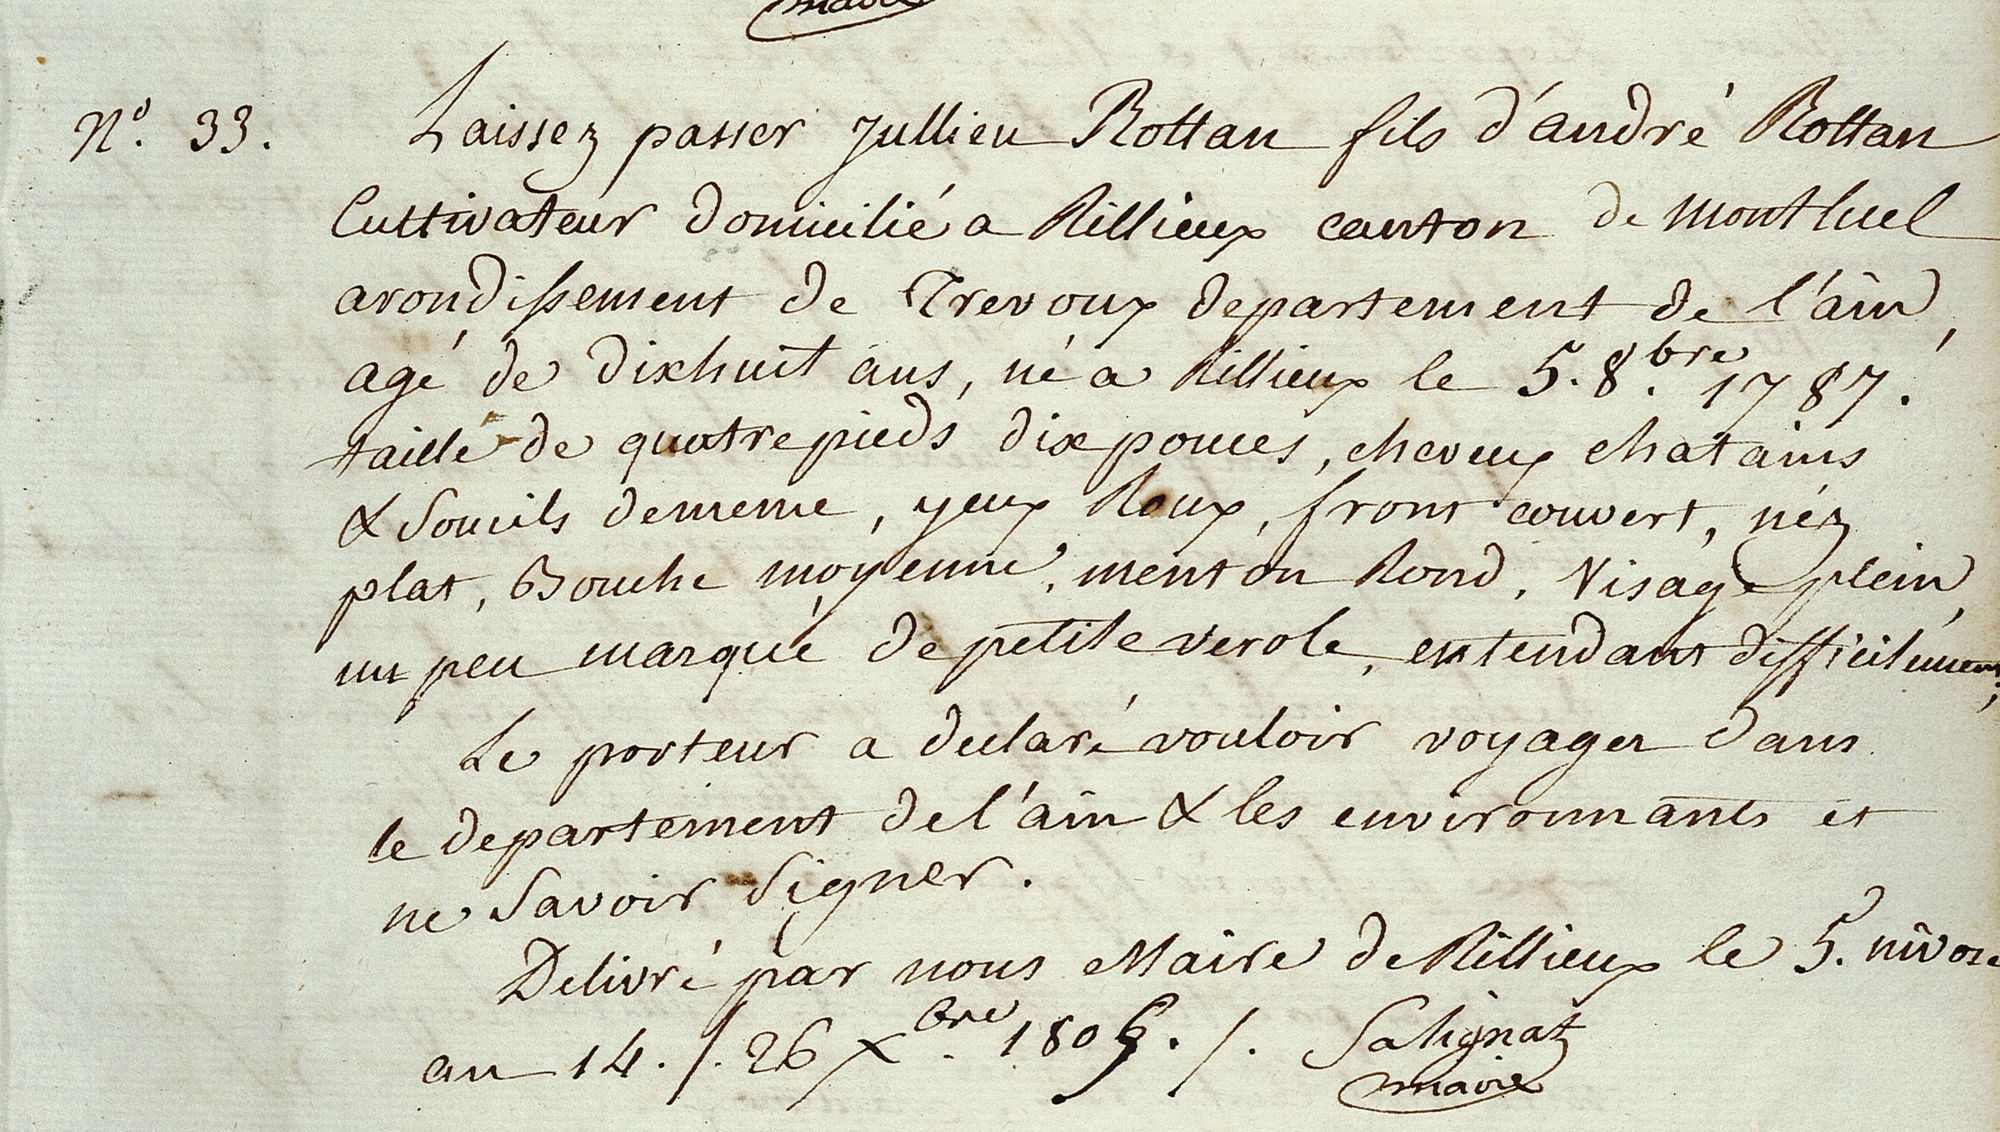 maire
N.º 33. Laissez passer Jullien Rottan fils d'andré Rottan
Cultivateur domicilié a Rillieux canton de Montluel
arondissement de Trevoux departement de l'ain,
agé de dixhuit ans, né a Rillieux le 5. 8.bre 1787.
taille de quatre pieds dix pouces, cheveux chatains
& Sourcils de meme, yeux Roux, front couvert, néz
plat, Bouche moyenne, menton Rond, Visage plein,
un peu marqué de petite verole, entendant difficilement;
Le porteur a declaré vouloir voyager dans
le departement de l'ain & les environnants et
ne Savoir Signer.
Delivré par nous Maire de Rillieux le 5. nivose
an 14. /. 26 Xbre. 1805. /. Salignat
maire